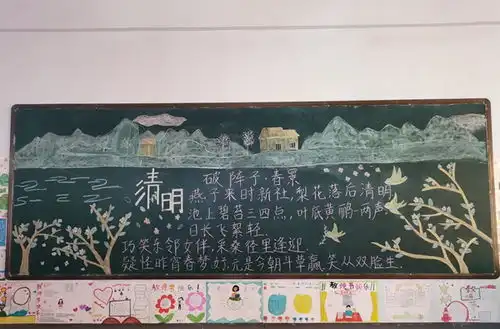 清明
破阵子·春景
燕子来时新社,梨花落后清明.
池上碧苔三四点,叶底黄鹂一两声.
日长飞絮轻.
巧笑东邻女伴,采桑径里逢迎.
疑怪昨宵春梦好,元是今朝斗草赢,笑从双脸生.